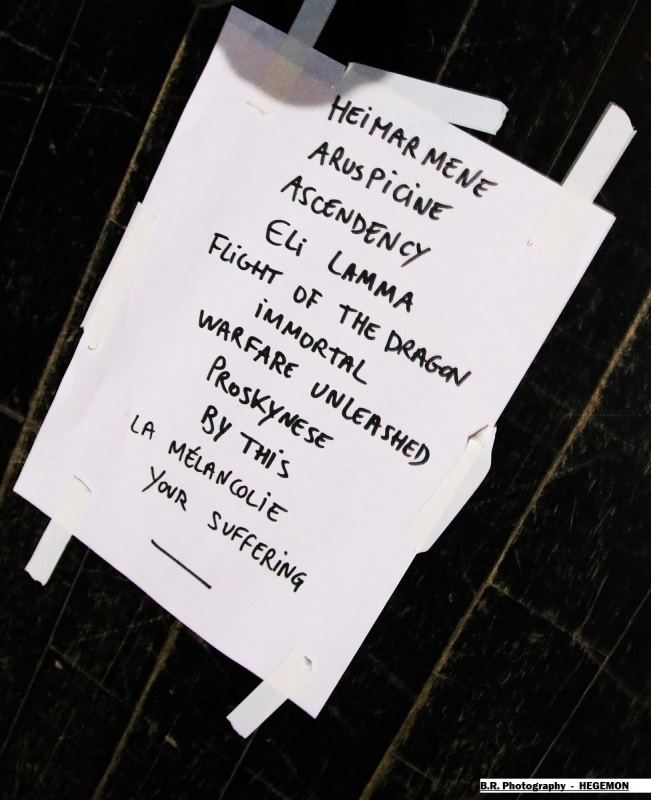 HEIMARMENE
ARUSPICINE
ASCENDENCY
ELI LAMMA
FLIGHT OF THE DRAGON
IMMORTAL
WARFARE UNLEASHED
PROSKYNESE
BY THIS
LA MÉLANCOLIE
YOUR SUFFERING
B.R. Photography - HEGEMON